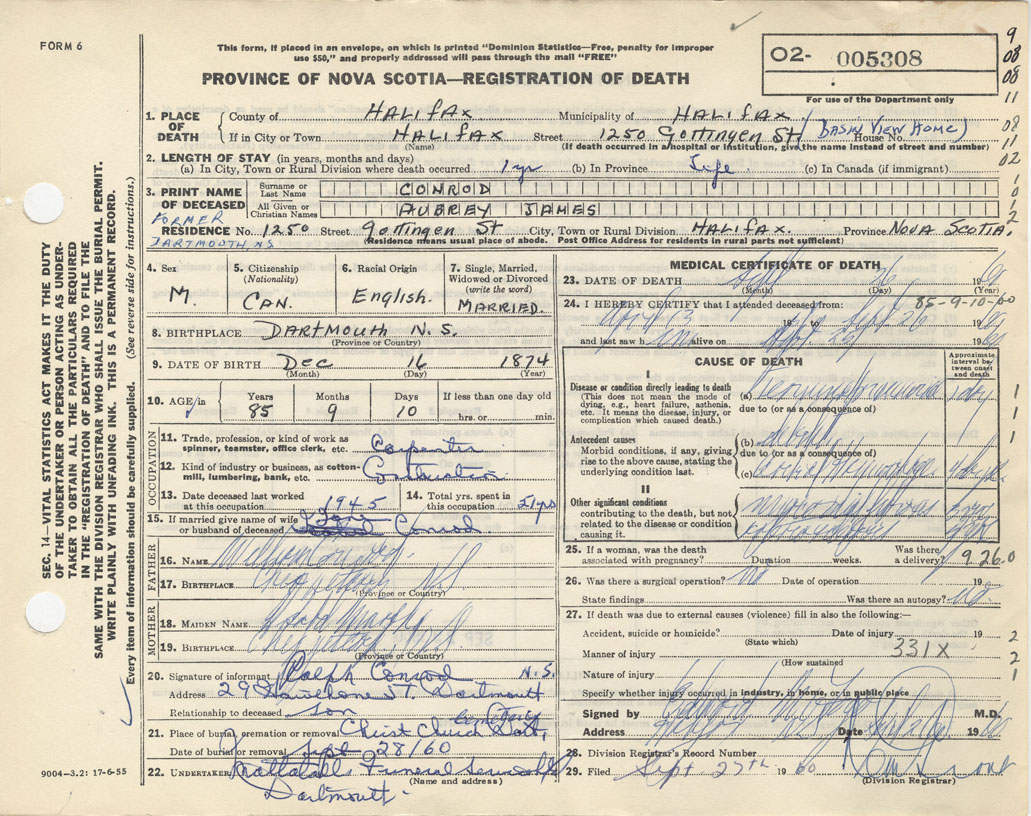 FORM 6
This form, if placed in an envelope, on which is printed "Dominion Statistics—Free, penalty for improper
use $50," and properly addressed will pass through the mail "FREE"
PROVINCE OF NOVA SCOTIA—REGISTRATION OF DEATH
O2- 005308
For use of the Department only
9
08
08
11
08
11
02
1. PLACE OF DEATH
County of HALIFAX Municipality of HALIFAX
If in City or Town HALIFAX Street 1250 Gottingen St (BASIN VIEW HOME) House No.
(Name) (If death occurred in a hospital or institution, give the name instead of street and number)
2. LENGTH OF STAY (in years, months and days)
(a) In City, Town or Rural Division where death occurred 1 yr (b) In Province Life (c) In Canada (if immigrant)
3. PRINT NAME OF DECEASED
Surname or Last Name CONROD
All Given or Christian Names AUBREY JAMES
FORMER
RESIDENCE No. 1250 Street Gottingen St City, Town or Rural Division HALIFAX. Province NOVA SCOTIA.
DARTMOUTH, N.S.
(Residence means usual place of abode. Post Office Address for residents in rural parts not sufficient)
4. Sex
M.
5. Citizenship
(Nationality)
CAN.
6. Racial Origin
English.
7. Single, Married, Widowed or Divorced
(write the word)
MARRIED.
8. BIRTHPLACE DARTMOUTH N.S.
(Province or Country)
9. DATE OF BIRTH Dec 16 1874
(Month) (Day) (Year)
10. AGE in Years Months Days If less than one day old
85 9 10 hrs. or min.
OCCUPATION
11. Trade, profession, or kind of work as spinner, teamster, office clerk, etc. Carpenter
12. Kind of industry or business, as cotton-mill, lumbering, bank, etc.
13. Date deceased last worked at this occupation 1945
14. Total yrs. spent in this occupation 51 yrs
15. If married give name of wife or husband of deceased Conrod
FATHER
16. NAME William Conrod
17. BIRTHPLACE N.S.
(Province or Country)
MOTHER
18. MAIDEN NAME
19. BIRTHPLACE
(Province or Country)
20. Signature of informant Ralph Conrod N.S.
Address 29 Hawthorne ST. Dartmouth
Relationship to deceased son
21. Place of burial, cremation or removal Christ Church Cemetery Dart.
Date of burial or removal Sept 28/60
22. UNDERTAKER Mattatall's Funeral
(Name and address)
Dartmouth
MEDICAL CERTIFICATE OF DEATH
23. DATE OF DEATH Sept 26 1960
(Month) (Day) (Year)
24. I HEREBY CERTIFY that I attended deceased from: 85-9-10-00
19 to Sept 26 1960
and last saw him alive on Sept 1960
CAUSE OF DEATH
Approximate interval between onset and death
I
Disease or condition directly leading to death
(This does not mean the mode of dying, e.g., heart failure, asthenia, etc. It means the disease, injury, or complication which caused death.)
(a) 1 day
due to (or as a consequence of)
Antecedent causes
Morbid conditions, if any, giving rise to the above cause, stating the underlying condition last.
(b)
due to (or as a consequence of)
(c)
II
Other significant conditions
contributing to the death, but not related to the disease or condition causing it.
25. If a woman, was the death associated with pregnancy? Duration weeks. Was there a delivery? 926.0
26. Was there a surgical operation? no Date of operation 19
State findings Was there an autopsy? no
27. If death was due to external causes (violence) fill in also the following:—
Accident, suicide or homicide? Date of injury 19
(State which)
Manner of injury 331X
(How sustained
Nature of injury
Specify whether injury occurred in industry, in home, or in public place
Signed by M.D.
Address Date 1960
28. Division Registrar's Record Number
29. Filed Sept 27th 1960
(Division Registrar)
9004—3.2: 17-6-55
SEC. 14—VITAL STATISTICS ACT MAKES IT THE DUTY
OF THE UNDERTAKER OR PERSON ACTING AS UNDER-
TAKER TO OBTAIN ALL THE PARTICULARS REQUIRED
IN THE "REGISTRATION OF DEATH" AND TO FILE THE
SAME WITH THE DIVISION REGISTRAR WHO SHALL ISSUE THE BURIAL PERMIT.
WRITE PLAINLY WITH UNFADING INK. THIS IS A PERMANENT RECORD.
Every item of information should be carefully supplied. (See reverse side for instructions.)